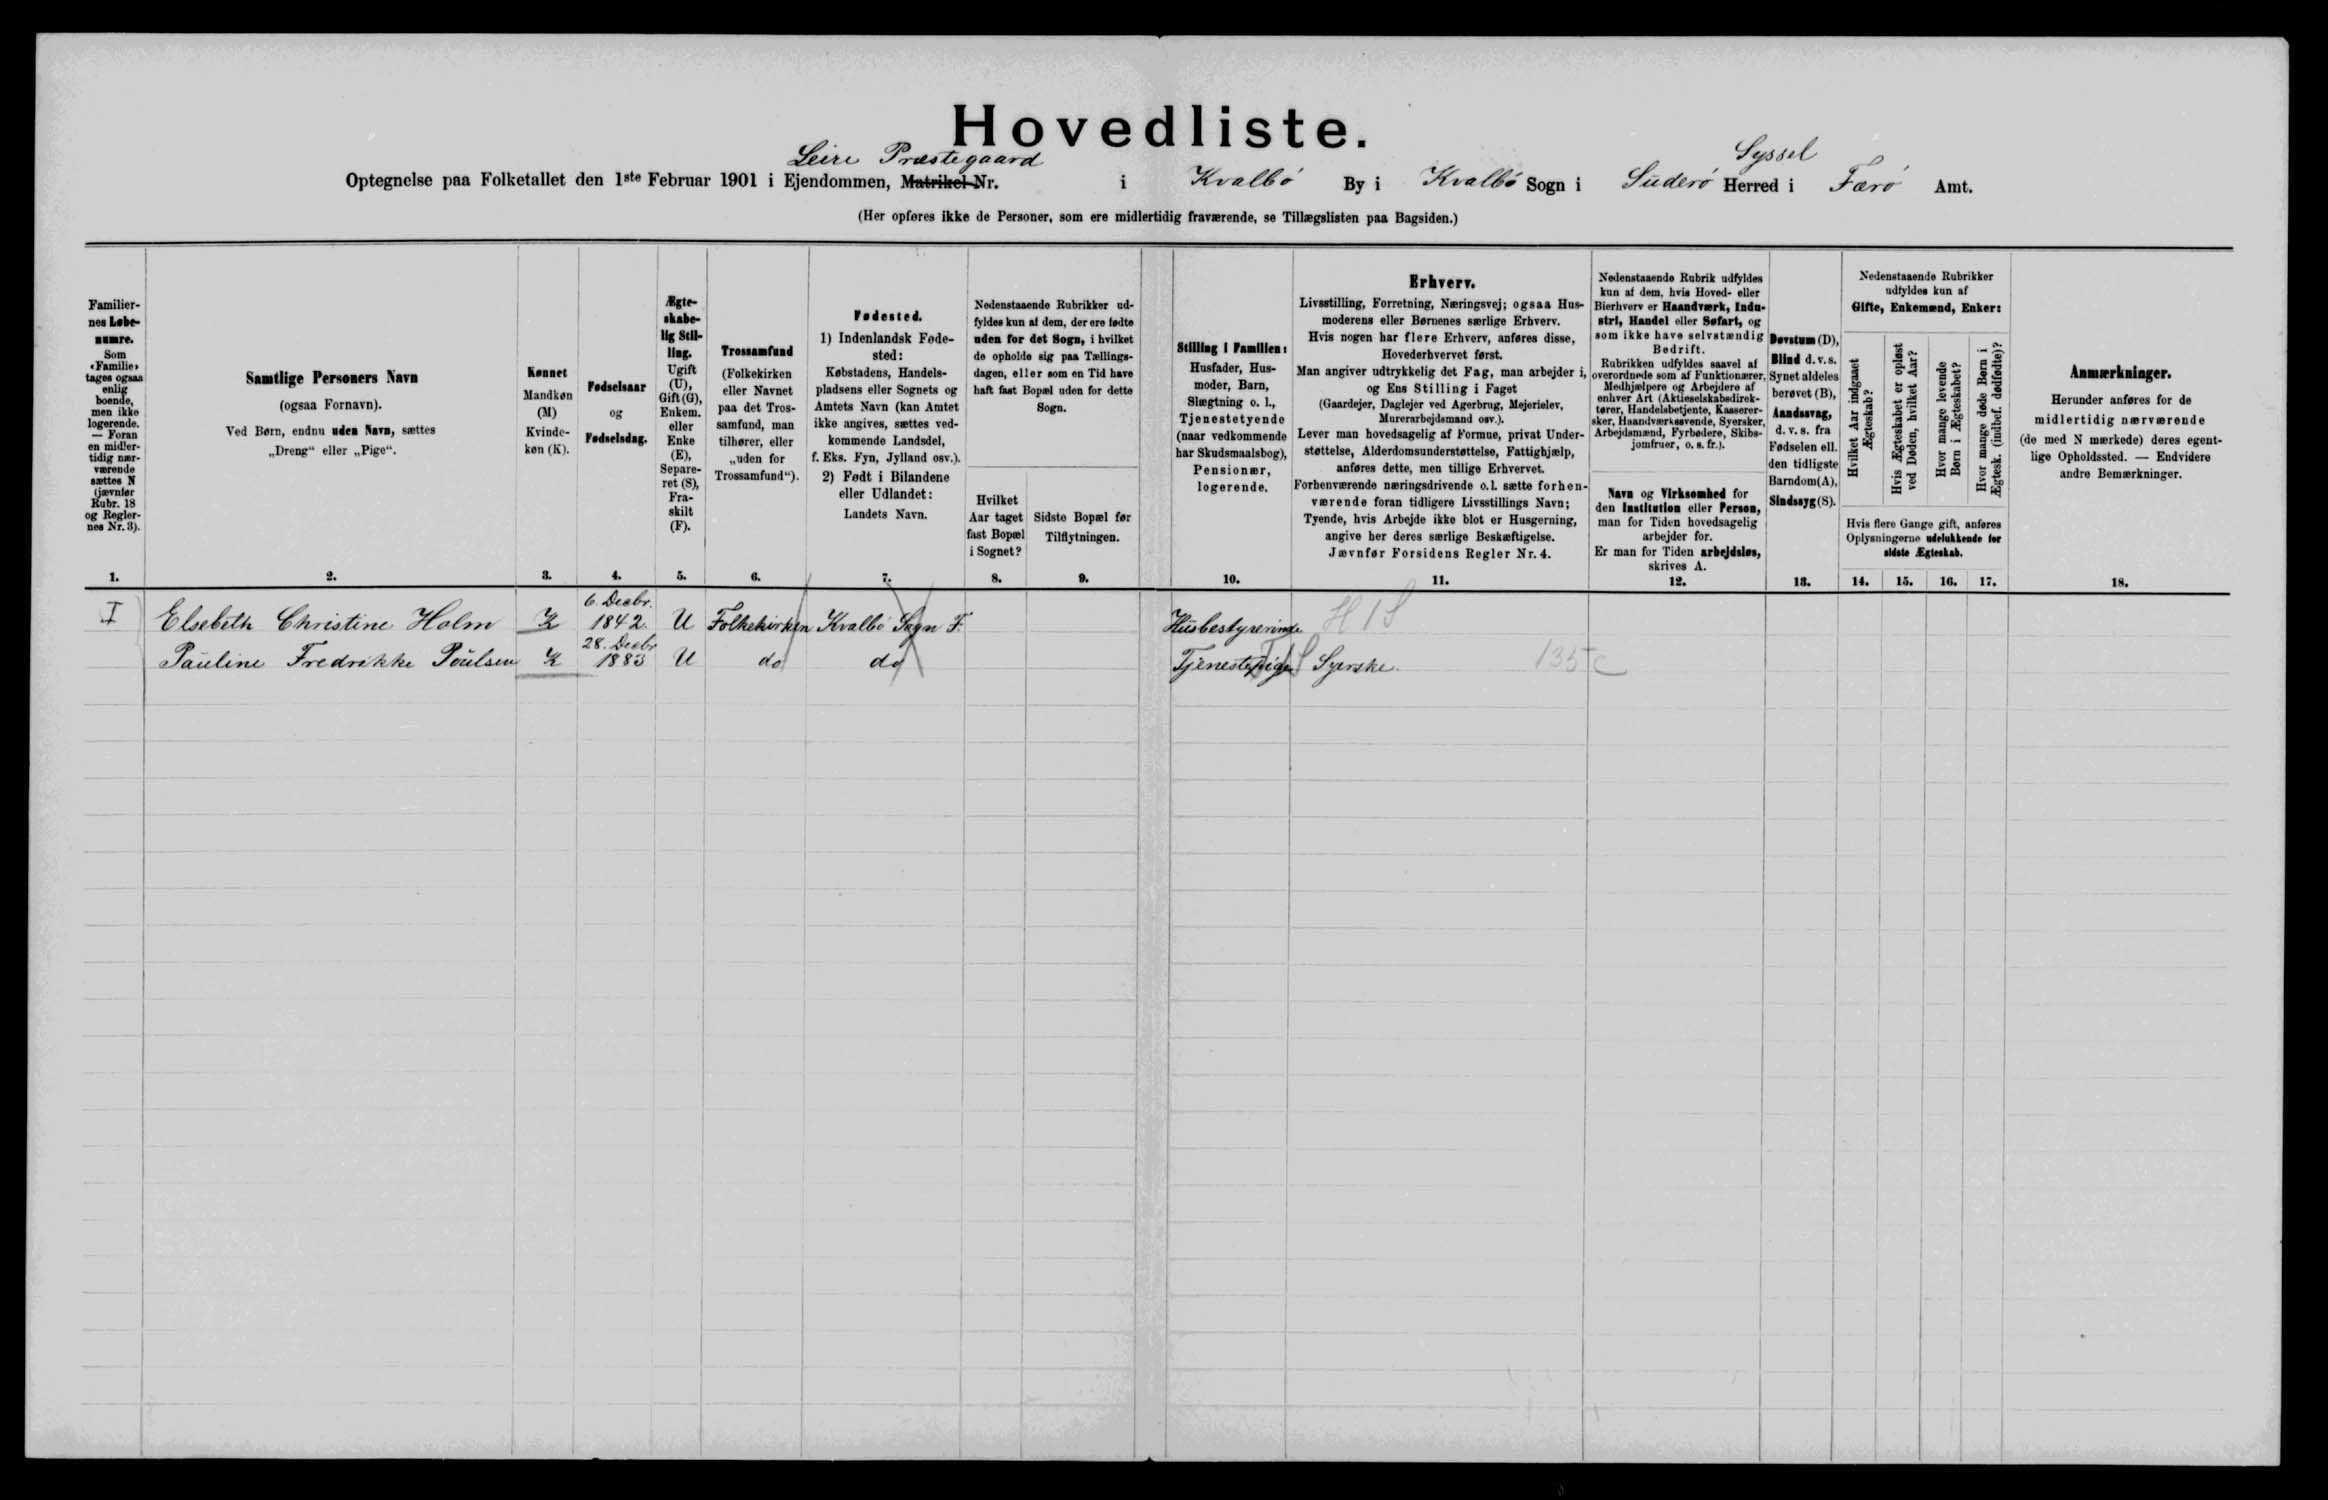 Hovedliste.
Leire Præstegaard
Syssel
Optegnelse paa Folketallet den 1ste Februar 1901 i Ejendommen, Matrikel-Nr. i Kvalbö By i Kvalbö Sogn i Süderö Herred i Færö Amt.
(Her opføres ikke de Personer, som ere midlertidig fraværende, se Tillægslisten paa Bagsiden.)
Familier-
nes Løbe-
numre.
Som
«Familie»
tages ogsaa
enlig
boende,
men ikke
logerende.
— Foran
en midler-
tidig nær-
værende
sættes N
(jævnfør
Rubr. 18
og Regler-
nes Nr. 3).
1.
Samtlige Personers Navn
(ogsaa Fornavn).
Ved Børn, endnu uden Navn, sættes
„Dreng“ eller „Pige“.
2.
Kønnet
Mandkøn
(M)
Kvinde-
køn (K).
3.
Fødselsaar
og
Fødselsdag.
4.
Ægte-
skabe-
lig Stil-
ling.
Ugift
(U),
Gift (G),
Enkem.
eller
Enke
(E),
Separe-
ret (S),
Fra-
skilt
(F).
5.
Trossamfund
(Folkekirken
eller Navnet
paa det Tros-
samfund, man
tilhører, eller
„uden for
Trossamfund“).
6.
Fødested.
1) Indenlandsk Føde-
sted:
Købstadens, Handels-
pladsens eller Sognets og
Amtets Navn (kan Amtet
ikke angives, sættes ved-
kommende Landsdel,
f. Eks. Fyn, Jylland osv.).
2) Født i Bilandene
eller Udlandet:
Landets Navn.
7.
Nedenstaaende Rubrikker ud-
fyldes kun af dem, der ere fødte
uden for det Sogn, i hvilket
de opholde sig paa Tællings-
dagen, eller som en Tid have
haft fast Bopæl uden for dette
Sogn.
Hvilket
Aar taget
fast Bopæl
i Sognet?
8.
Sidste Bopæl før
Tilflytningen.
9.
Stilling i Familien:
Husfader, Hus-
moder, Barn,
Slægtning o. l.,
Tjenestetyende
(naar vedkommende
har Skudsmaalsbog),
Pensionær,
logerende.
10.
Erhverv.
Livsstilling, Forretning, Næringsvej; ogsaa Hus-
moderens eller Børnenes særlige Erhverv.
Hvis nogen har flere Erhverv, anføres disse,
Hovederhvervet først.
Man angiver udtrykkelig det Fag, man arbejder i,
og Ens Stilling i Faget
(Gaardejer, Daglejer ved Agerbrug, Mejerielev,
Murerarbejdsmand osv.).
Lever man hovedsagelig af Formue, privat Under-
støttelse, Alderdomsunderstøttelse, Fattighjælp,
anføres dette, men tillige Erhvervet.
Forhenværende næringsdrivende o. l. sætte forhen-
værende foran tidligere Livsstillings Navn;
Tyende, hvis Arbejde ikke blot er Husgerning,
angive her deres særlige Beskæftigelse.
Jævnfør Forsidens Regler Nr. 4.
11.
Nedenstaaende Rubrik udfyldes
kun af dem, hvis Hoved- eller
Bierhverv er Haandværk, Indu-
stri, Handel eller Søfart, og
som ikke have selvstændig
Bedrift.
Rubrikken udfyldes saavel af
overordnede som af Funktionærer,
Medhjælpere og Arbejdere af
enhver Art (Aktieselskabsdirek-
tører, Handelsbetjente, Kasserer-
sker, Haandværkssvende, Syersker,
Arbejdsmænd, Fyrbødere, Skibs-
jomfruer, o. s. fr.).
Navn og Virksomhed for
den Institution eller Person,
man for Tiden hovedsagelig
arbejder for.
Er man for Tiden arbejdsløs,
skrives A.
12.
Døvstum (D),
Blind d. v. s.
Synet aldeles
berøvet (B),
Aandssvag,
d. v. s. fra
Fødselen ell.
den tidligste
Barndom (A),
Sindssyg (S).
13.
Nedenstaaende Rubrikker
udfyldes kun af
Gifte, Enkemænd, Enker:
Hvilket Aar indgaaet
Ægteskab?
Hvis Ægteskabet er opløst
ved Døden, hvilket Aar?
Hvor mange levende
Børn i Ægteskabet?
Hvor mange døde Børn i
Ægtesk. (indbef. dødfødte)?
Hvis flere Gange gift, anføres
Oplysningerne udelukkende for
sidste Ægteskab.
14. 15. 16. 17.
Anmærkninger.
Herunder anføres for de
midlertidig nærværende
(de med N mærkede) deres egent-
lige Opholdssted. — Endvidere
andre Bemærkninger.
18.
I Elsebeth Christine Holm K 6. Decbr. 1842. U Folkekirken Kvalbö Sogn F. Husbestyrerinde H 1 S
Pauline Fredrikke Poulsen K 28. Decbr 1883 U do do Tjenestepige Syerske. 135 c